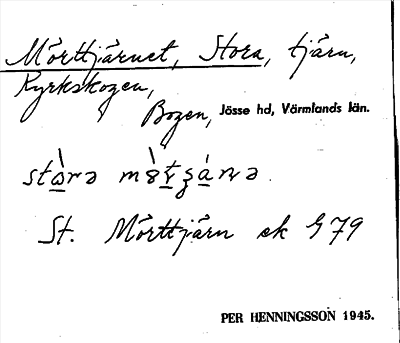 Mörttjärnet, Stora, tjärn,
Kyrkskogen,
Bogen, Jösse hd, Värmlands län.
St. Mörttjärn ek S 79
PER HENNINGSSON 1945.